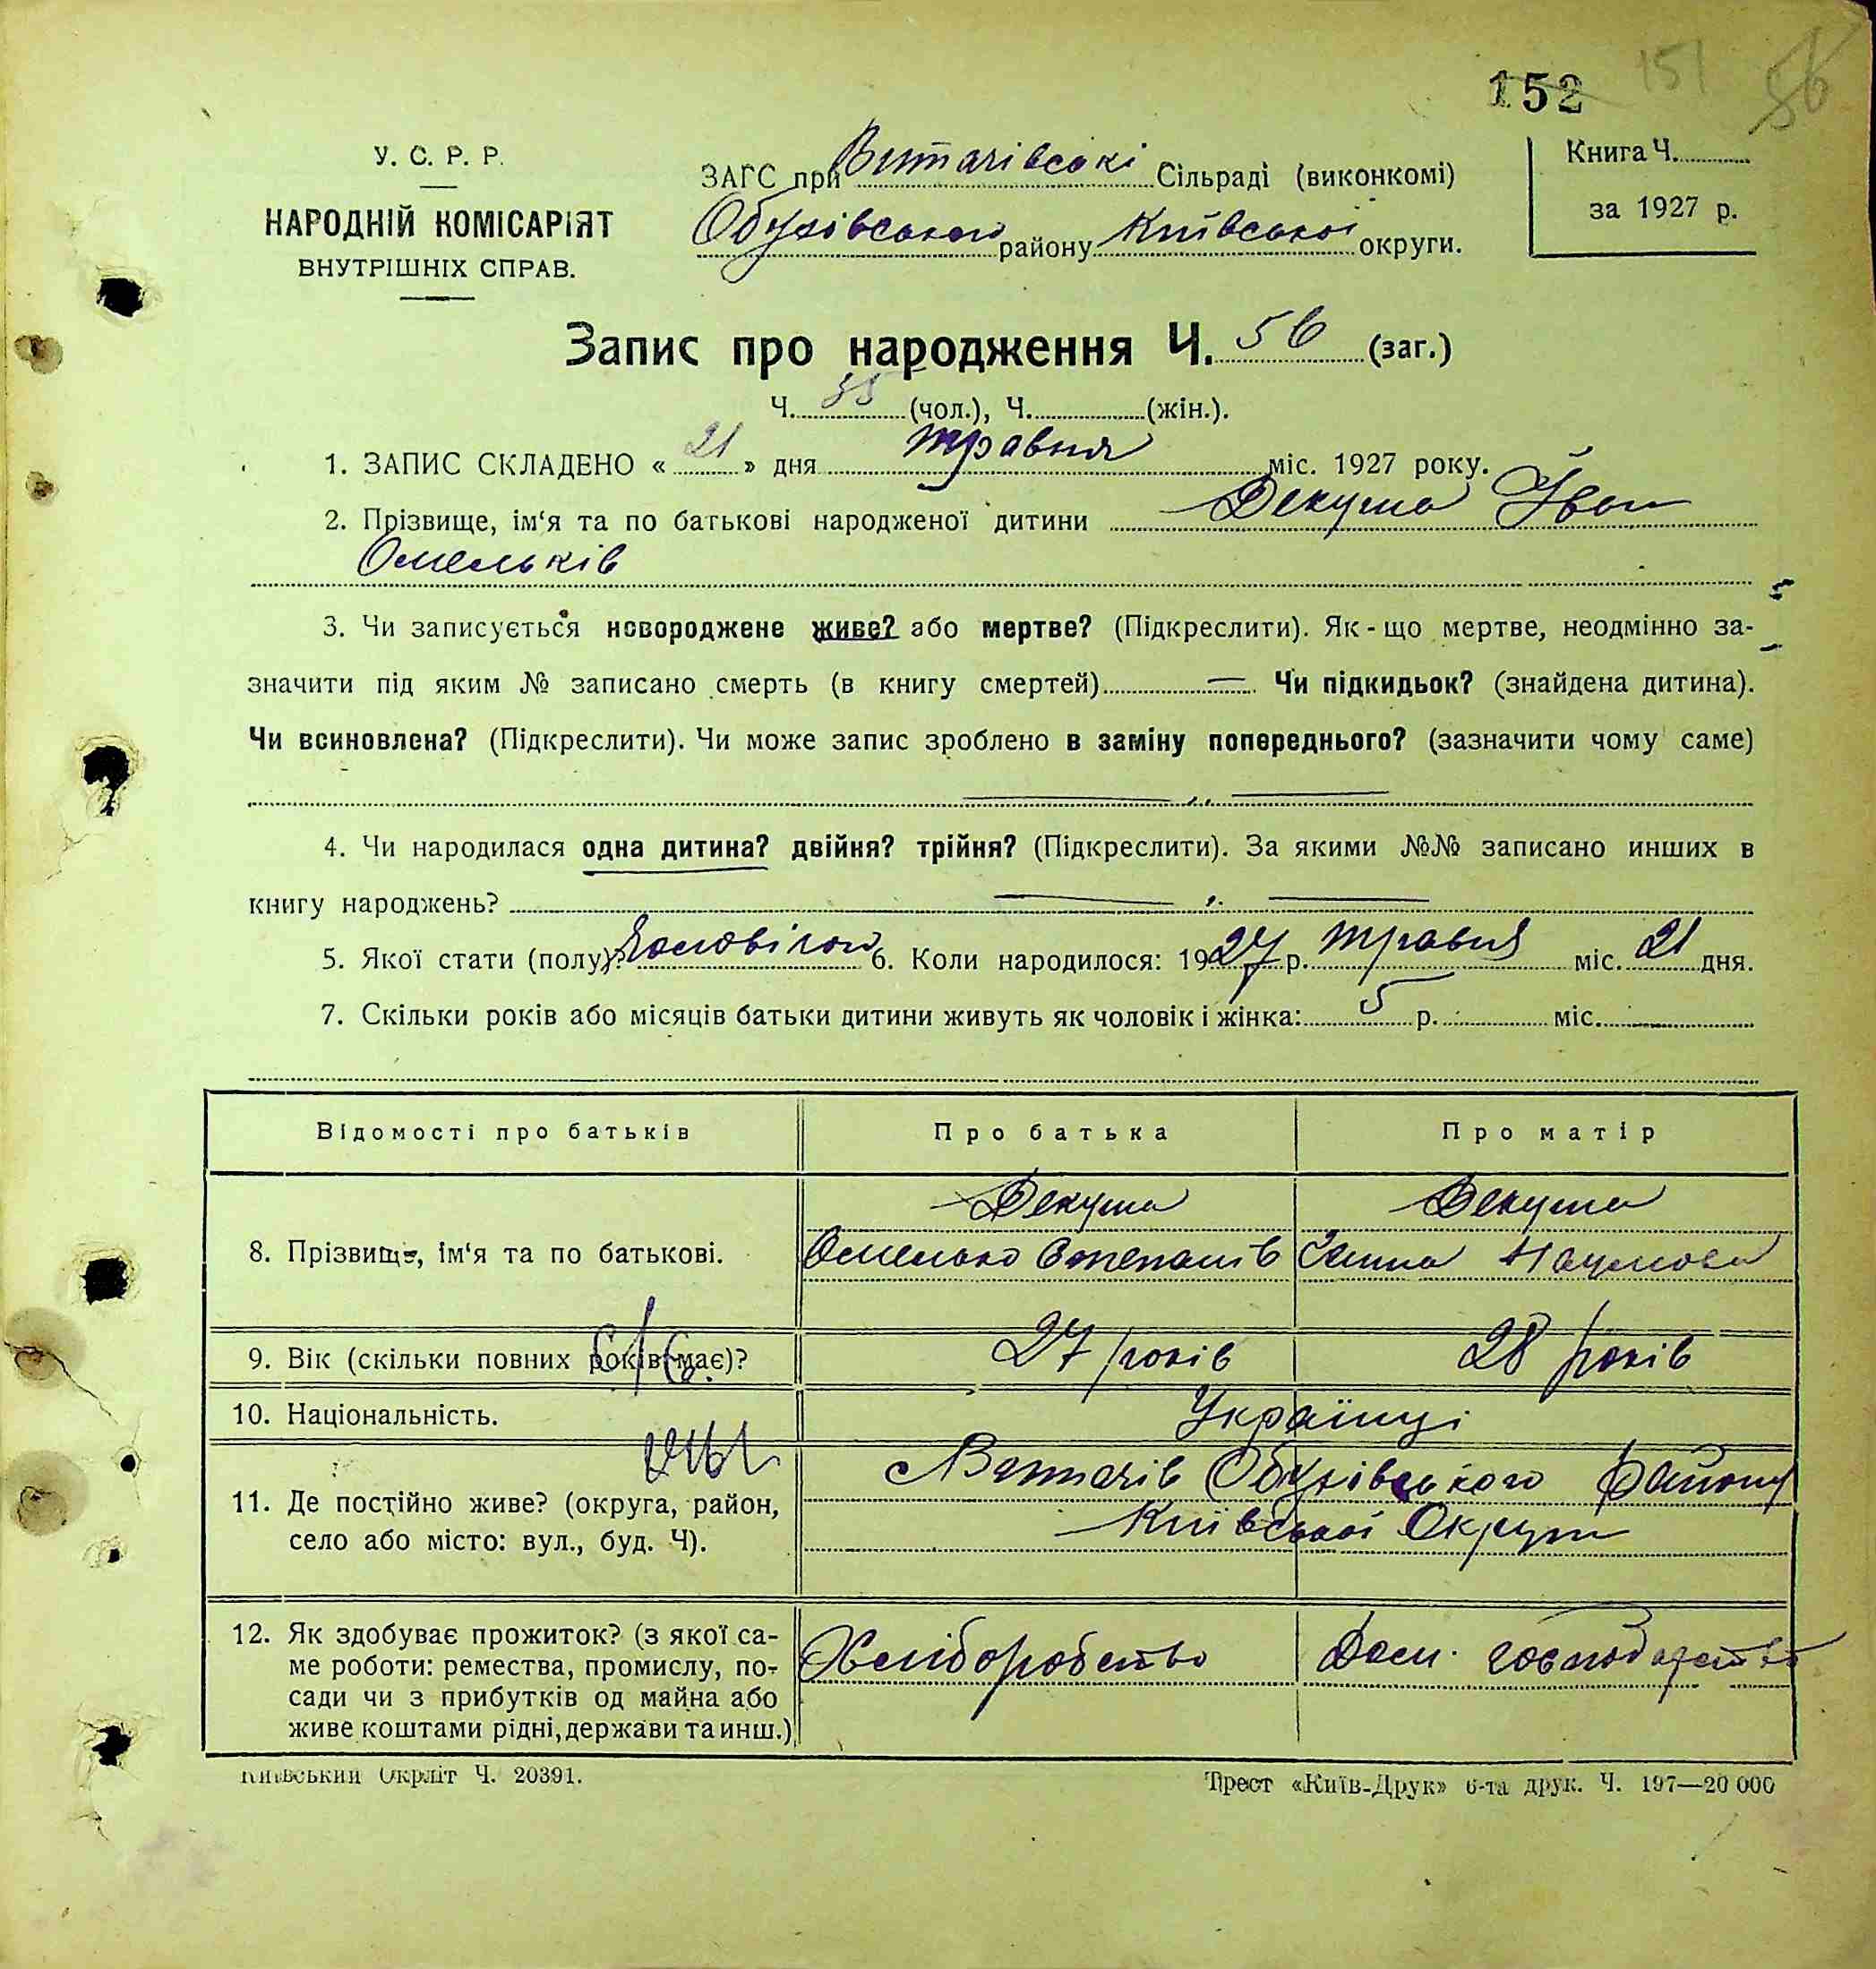 152 151 56
У. С. Р. Р.
НАРОДНІЙ КОМІСАРІЯТ
ВНУТРІШНІХ СПРАВ.
ЗАГС при Витачівські Сільраді (виконкомі)
Обухівського району Київської округи.
Книга Ч.
за 1927 р.
Запис про народження Ч. 56 (заг.)
Ч. 35 (чол.), Ч. (жін.).
1. ЗАПИС СКЛАДЕНО « 21 » дня травня міс. 1927 року.
2. Прізвище, ім‘я та по батькові народженої дитини Декуша Іван
Омельків
3. Чи записується новороджене живе? або мертве? (Підкреслити). Як-що мертве, неодмінно за-
значити під яким № записано смерть (в книгу смертей) — Чи підкидьок? (знайдена дитина).
Чи всиновлена? (Підкреслити). Чи може запис зроблено в заміну попереднього? (зазначити чому саме)
— „ —
4. Чи народилася одна дитина? двійня? трійня? (Підкреслити). За якими №№ записано инших в
книгу народжень? — „ —
5. Якої стати (полу)? 6. Коли народилося: 1927 р. травня міс. 21 дня.
7. Скільки років або місяців батьки дитини живуть як чоловік і жінка: 5 р. міс.
Відомості про батьків
Про батька
Про матір
8. Прізвище, ім‘я та по батькові.
Декуша
Омелько Степанів
Декуша
Ганна Наумова
9. Вік (скільки повних років має)?
27 років
28 років
10. Національність.
Українці
11. Де постійно живе? (округа, район,
село або місто: вул., буд. Ч).
с Витачів Обухівського Району
Київської Округи
12. Як здобуває прожиток? (з якої са-
ме роботи: ремества, промислу, по-
сади чи з прибутків од майна або
живе коштами рідні, держави та инш.)
Хліборобство
Дом. господарство
Київський Окрліт Ч. 20391.
Трест «Київ-Друк» 6-та друк. Ч. 197—20 000